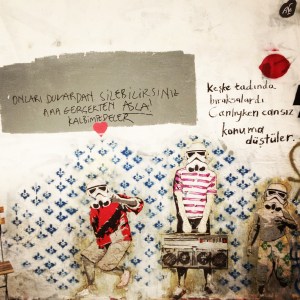 ONLARI DUVARDAN SİLEBİLİRSİNİZ
AMA GERÇEKTEN ASLA!
KALBİMİZDELER
Keşke tadında
bıraksalardı
Canlıyken cansız
konuma
düştüler.